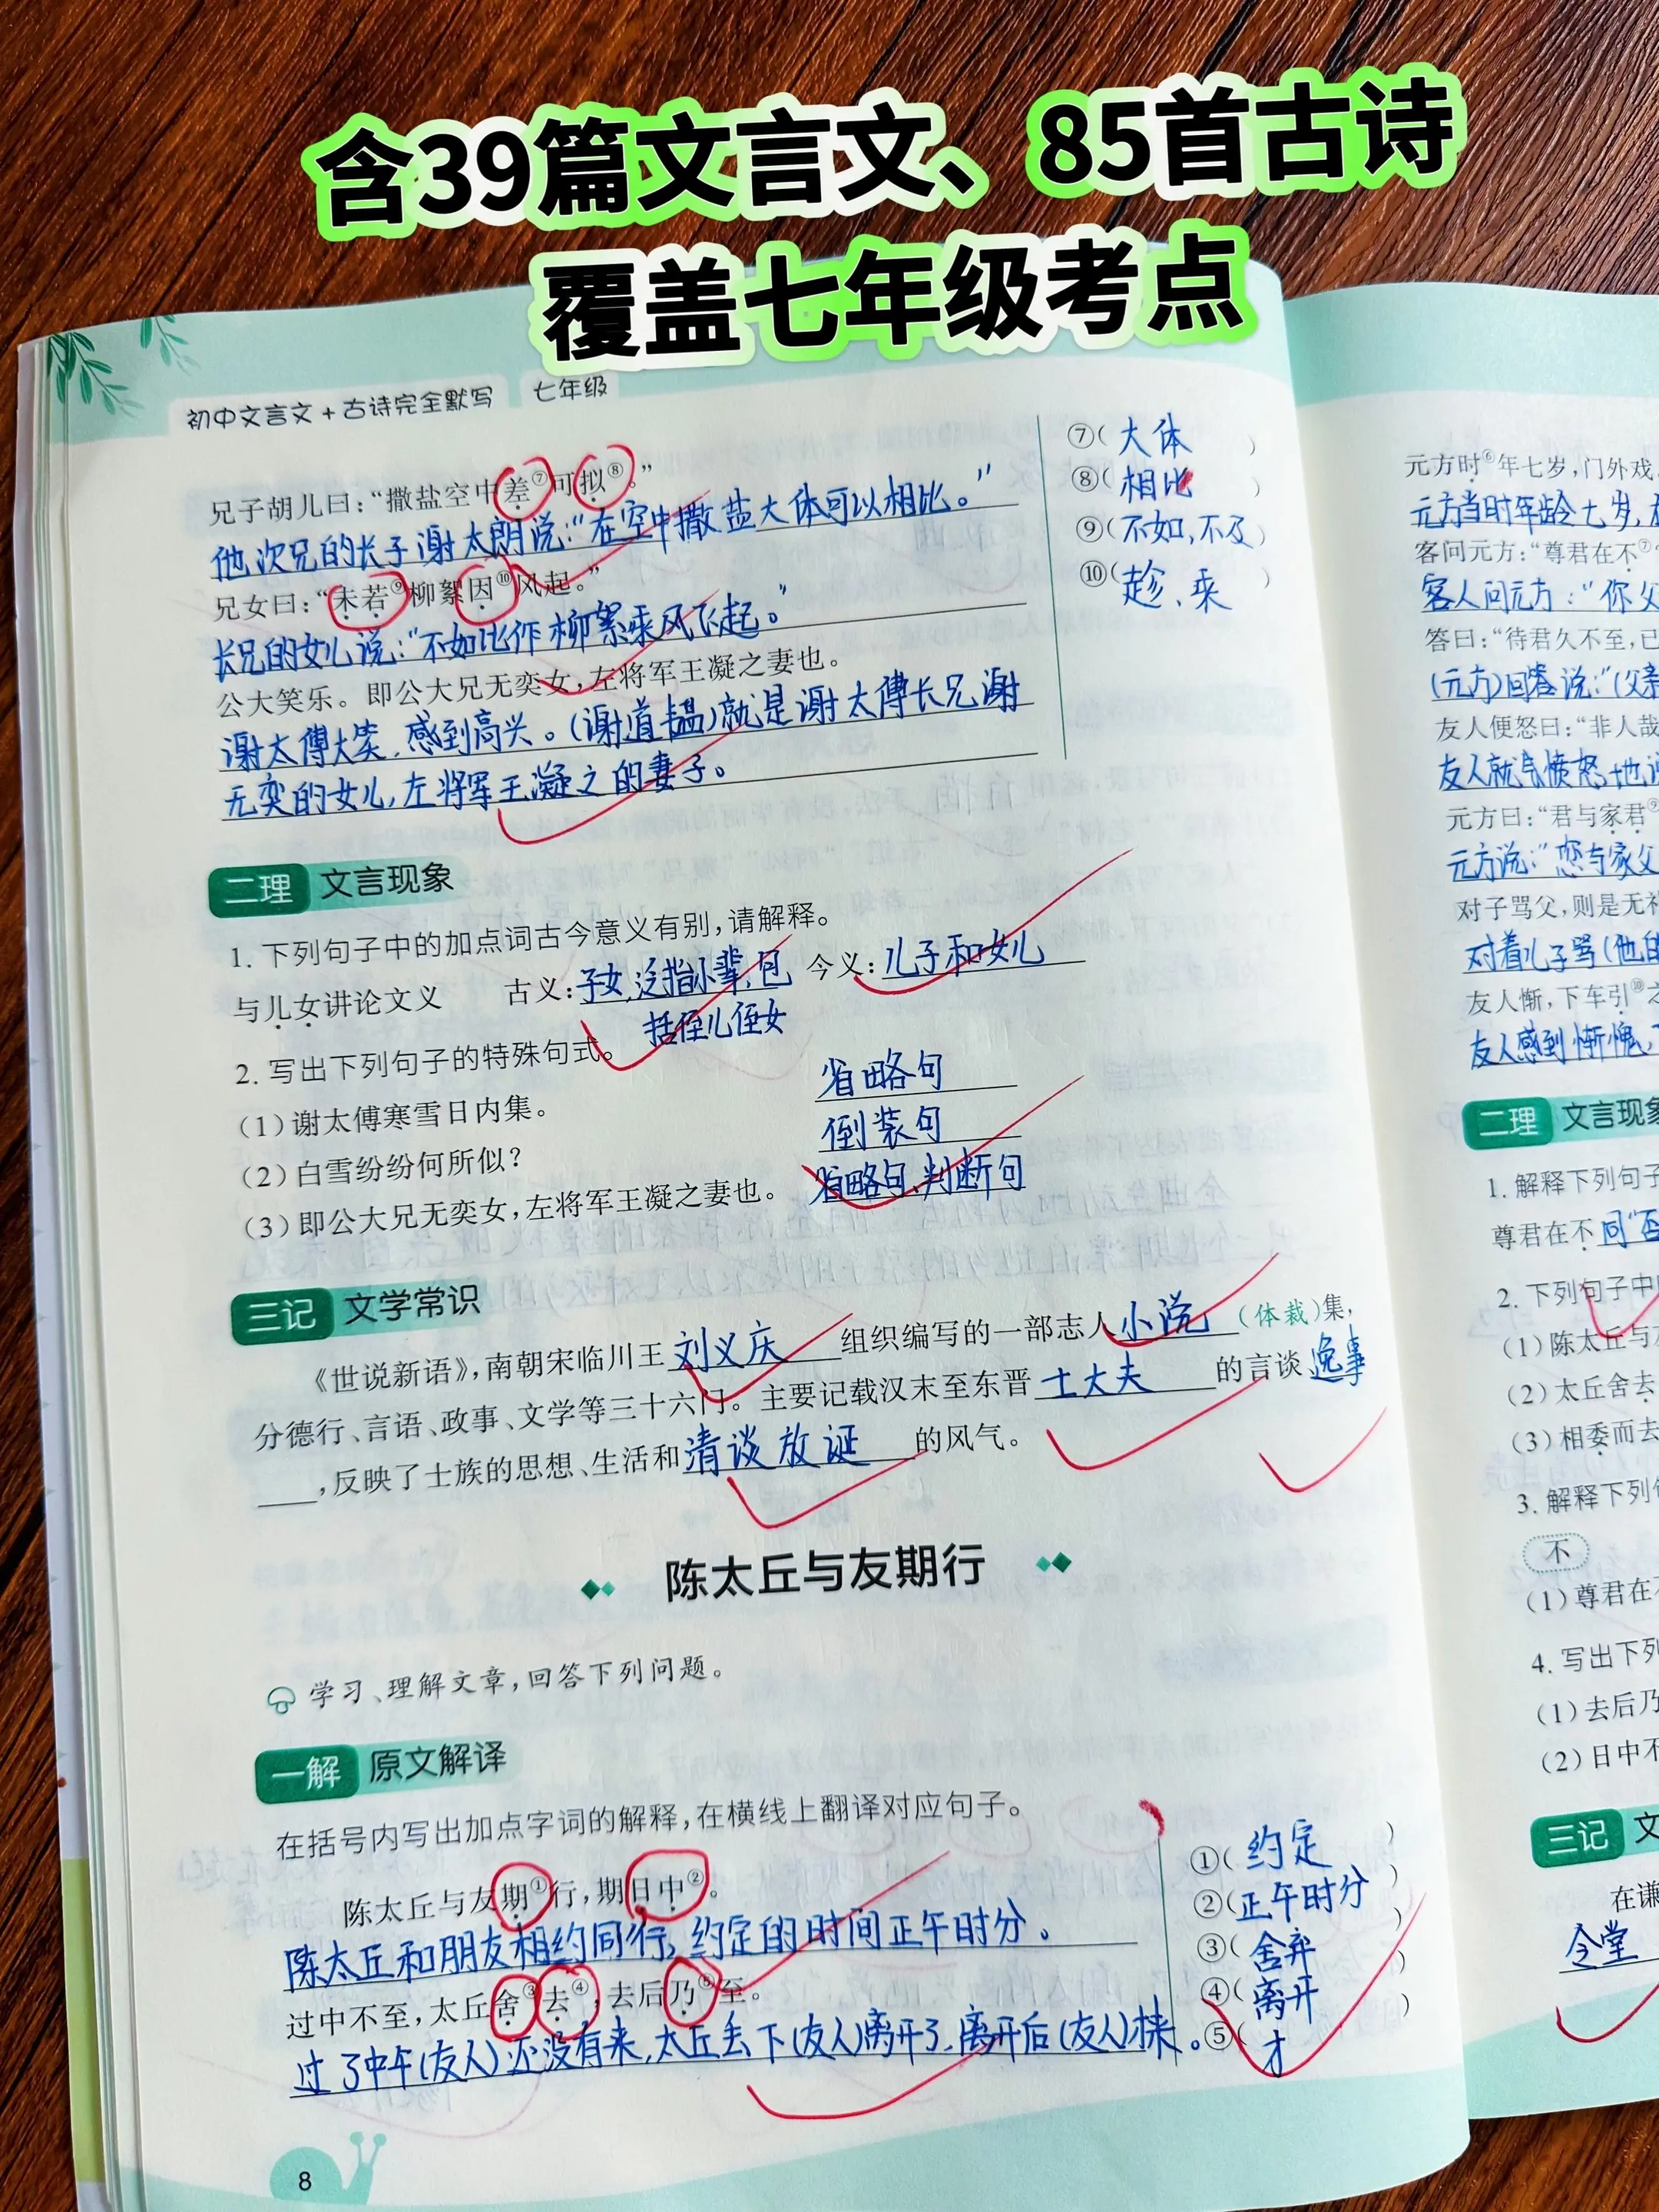 含39篇文言文、85首古诗
覆盖七年级考点
初中文言文+古诗完全默写 七年级
兄子胡儿曰：“撒盐空中差⑦可拟⑧。”
他次兄的长子谢太朗说：“在空中撒盐大体可以相比。”
兄女曰：“未若⑨柳絮因⑩风起。”
长兄的女儿说：“不如比作柳絮乘风飞起。”
公大笑乐。即公大兄无奕女，左将军王凝之妻也。
谢太傅大笑，感到高兴。(谢道韫)就是谢太傅长兄谢
无奕的女儿，左将军王凝之的妻子。
⑦( 大体 )
⑧( 相比 )
⑨(不如，不及)
⑩( 趁、乘 )
二理 文言现象
1. 下列句子中的加点词古今意义有别，请解释。
与儿女讲论文义 古义：子女，泛指小辈，包 今义：儿子和女儿
括侄儿侄女
2. 写出下列句子的特殊句式。
(1)谢太傅寒雪日内集。 省略句
(2)白雪纷纷何所似？ 倒装句
(3)即公大兄无奕女，左将军王凝之妻也。 省略句、判断句
三记 文学常识
《世说新语》，南朝宋临川王刘义庆组织编写的一部志人小说(体裁)集，
分德行、言语、政事、文学等三十六门。主要记载汉末至东晋士大夫的言谈逸事
，反映了士族的思想、生活和清谈放诞的风气。
陈太丘与友期行
学习、理解文章，回答下列问题。
一解 原文解译
在括号内写出加点字词的解释，在横线上翻译对应句子。
陈太丘与友期①行，期日中②。
陈太丘和朋友相约同行，约定的时间正午时分。
过中不至，太丘舍③去④，去后乃⑤至。
过了中午(友人)还没有来，太丘丢下(友人)离开了，离开后(友人)才来。
①( 约定 )
②(正午时分 )
③( 舍弃 )
④( 离开 )
⑤( 才 )
8
元方时⑥年七岁，门外戏
元方当时年龄七岁，
客问元方：“尊君在不⑦
客人问元方：“你父
答曰：“待君久不至，已
(元方)回答说：“(父亲
友人便怒曰：“非人哉
友人就气愤怒地
元方曰：“君与家君⑨
元方说：“您与家父
对子骂父，则是无礼
对着儿子骂(他的
友人惭，下车引⑩之
友人感到惭愧，
二理 文言现象
1. 解释下列句子
尊君在不 同“否
2. 下列句子中
(1)陈太丘与
(2)太丘舍去
(3)相委而去
3. 解释下列
不
(1)尊君在
4. 写出下列
(1)去后乃
(2)日中不
三记 文
在谦
令堂